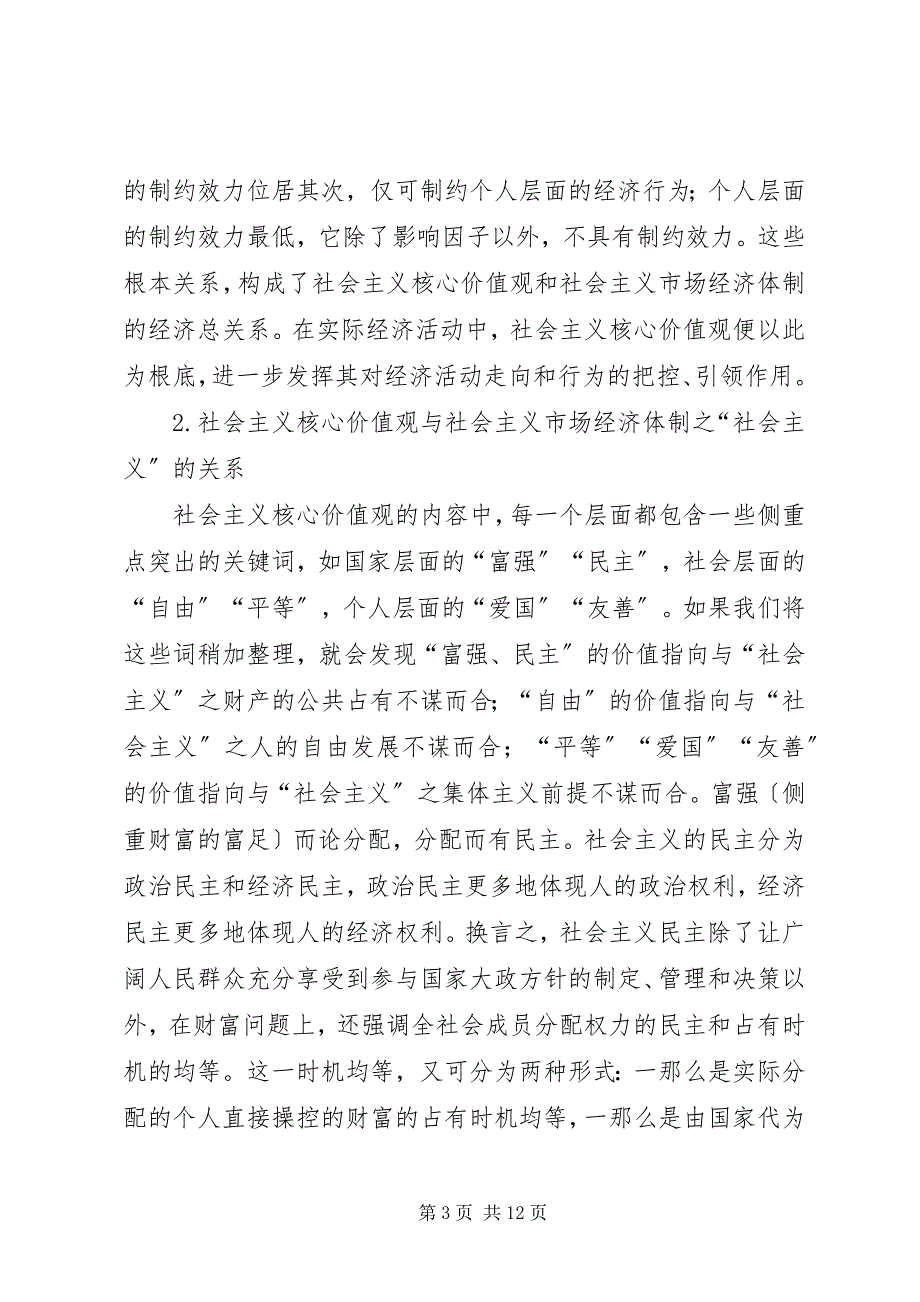 的制约效力位居其次，仅可制约个人层面的经济行为；个人层面
的制约效力最低，它除了影响因子以外，不具有制约效力。这些
根本关系，构成了社会主义核心价值观和社会主义市场经济体制
的经济总关系。在实际经济活动中，社会主义核心价值观便以此
为根底，进一步发挥其对经济活动走向和行为的把控、引领作用。
2.社会主义核心价值观与社会主义市场经济体制之“社会主
义〞的关系
社会主义核心价值观的内容中，每一个层面都包含一些侧重
点突出的关键词，如国家层面的“富强〞“民主〞，社会层面的
“自由〞“平等〞，个人层面的“爱国〞“友善〞。如果我们将
这些词稍加整理，就会发现“富强、民主〞的价值指向与“社会
主义〞之财产的公共占有不谋而合；“自由〞的价值指向与“社
会主义〞之人的自由发展不谋而合；“平等〞“爱国〞“友善〞
的价值指向与“社会主义〞之集体主义前提不谋而合。富强〔侧
重财富的富足〕而论分配，分配而有民主。社会主义的民主分为
政治民主和经济民主，政治民主更多地体现人的政治权利，经济
民主更多地体现人的经济权利。换言之，社会主义民主除了让广
阔人民群众充分享受到参与国家大政方针的制定、管理和决策以
外，在财富问题上，还强调全社会成员分配权力的民主和占有时
机的均等。这一时机均等，又可分为两种形式：一那么是实际分
配的个人直接操控的财富的占有时机均等，一那么是由国家代为
第 3 页 共 12 页